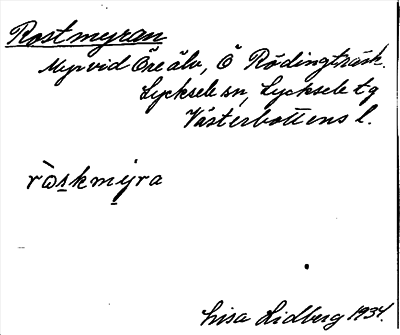 Rostmyran
Myr vid Öre älv, Ö Rödingträsk.
Lycksele sn, Lycksele tg
Västerbottens l.
rò̀s̱kmỳra
Lisa Lidberg 1934.